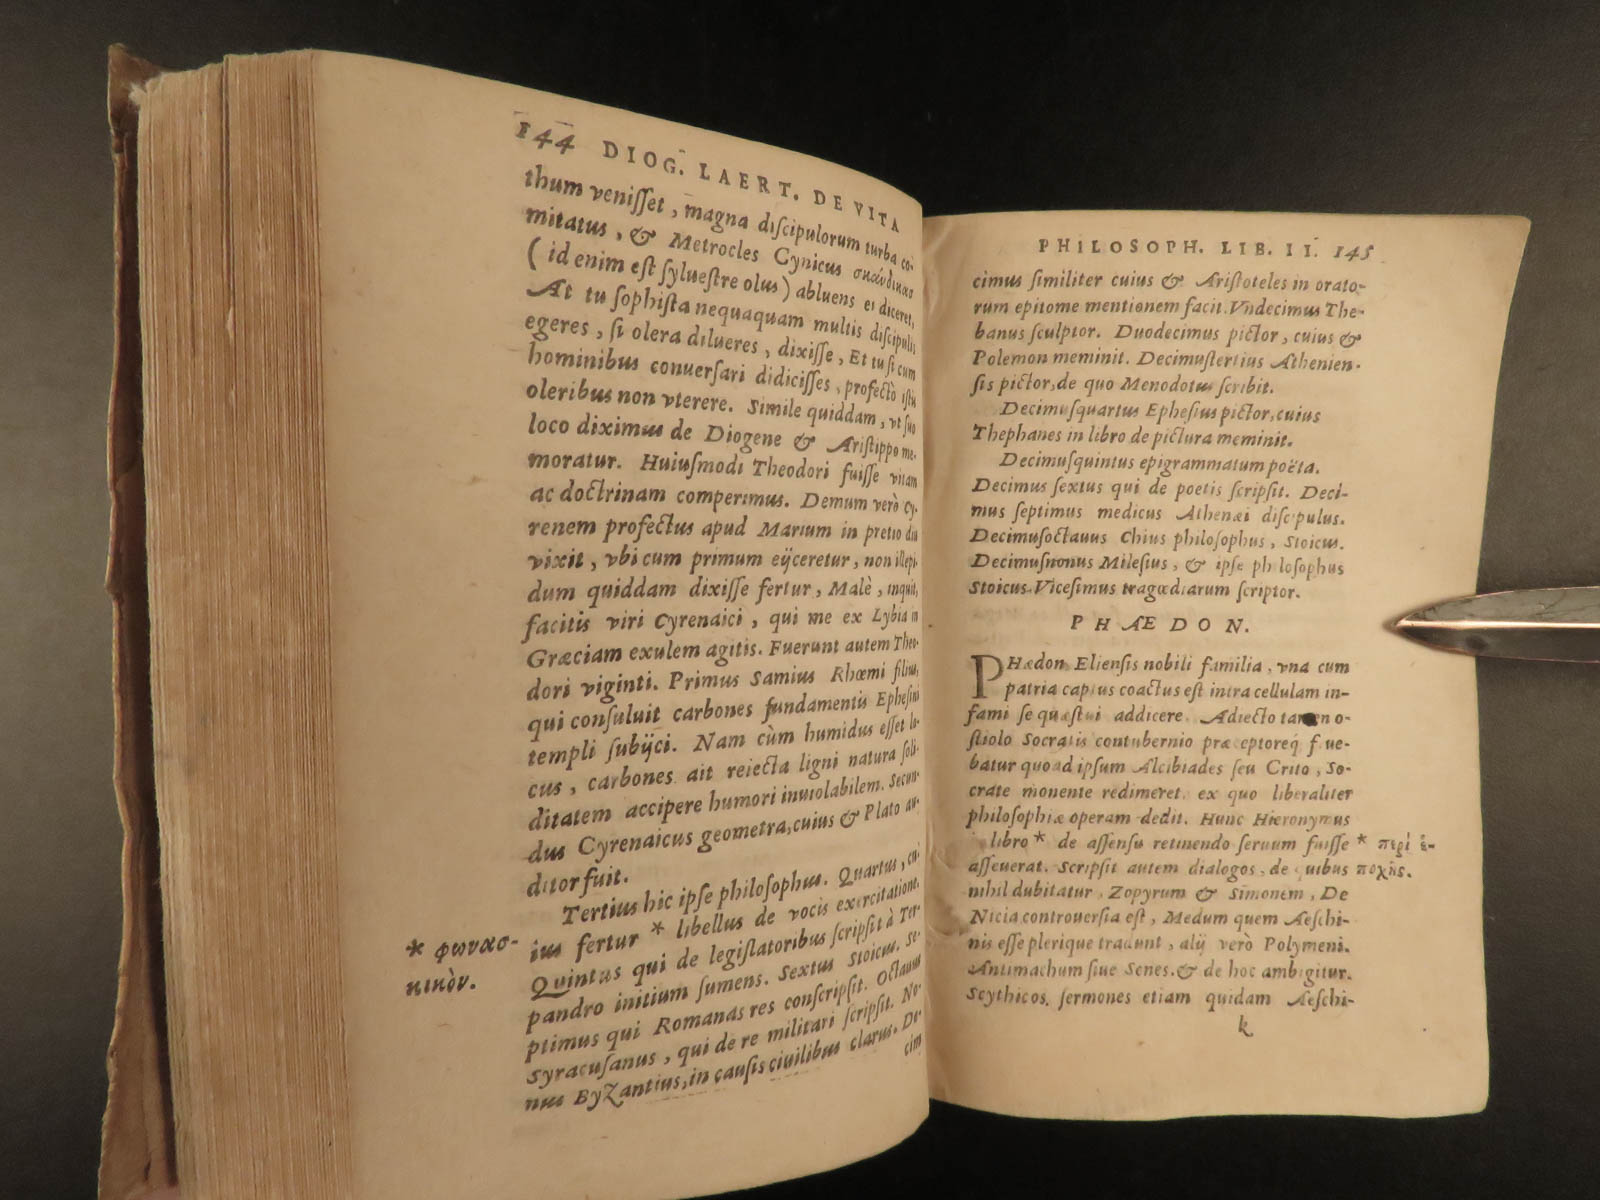 144 DIOG. LAERT. DE VITA
thum veniſſet, magna diſcipulorum turba co-
mitatus, & Metrocles Cynicus σκάνδικας
(id enim eſt ſylueſtre olus) abluens ei diceret,
At tu ſophiſta nequaquam multis diſcipulis
egeres, ſi olera dilueres, dixiſſe, Et tu ſi cum
hominibus conuerſari didiciſſes, profectò iſtis
oleribus non vterere. Simile quiddam, vt ſuo
loco diximus de Diogene & Ariſtippo me-
moratur. Huiuſmodi Theodori fuiſſe vitam
ac doctrinam comperimus. Demum verò Cy-
renem profectus apud Marium in pretio diu
vixit, vbi cum primum eijceretur, non illepi-
dum quiddam dixiſſe fertur, Malè, inquit,
facitis viri Cyrenaici, qui me ex Lybia in
Græciam exulem agitis. Fuerunt autem Theo-
dori viginti. Primus Samius Rhœmi filius,
qui conſuluit carbones fundamentis Epheſini
templi ſubijci. Nam cùm humidus eſſet lo-
cus, carbones ait reiecta ligni natura ſoli-
ditatem accipere humori inuiolabilem. Secun-
dus Cyrenaicus geometra, cuius & Plato au-
ditor fuit.
Tertius hic ipſe philoſophus. Quartus, cu-
ius fertur * libellus de vocis exercitatione.
* φωνασ-
κικὸν.
Quintus qui de legiſlatoribus ſcripſit à Ter-
pandro initium ſumens. Sextus Stoicus. Se-
ptimus qui Romanas res conſcripſit. Octauus
Syracuſanus, qui de re militari ſcripſit. No-
nus Byzantius, in cauſis ciuilibus clarus. De-
cim
PHILOSOPH. LIB. II. 145
cimus ſimiliter cuius & Ariſtoteles in orato-
rum epitome mentionem facit. Vndecimus The-
banus ſculptor. Duodecimus pictor, cuius &
Polemon meminit. Decimuſtertius Athenien-
ſis pictor, de quo Menodotus ſcribit.
Decimuſquartus Epheſius pictor, cuius
Thephanes in libro de pictura meminit.
Decimuſquintus epigrammatum poëta.
Decimus ſextus qui de poetis ſcripſit. Deci-
mus ſeptimus medicus Athenæi diſcipulus.
Decimuſoctauus Chius philoſophus, Stoicus.
Decimuſnonus Mileſius, & ipſe philoſophus
Stoicus. Viceſimus tragœdiarum ſcriptor.
PHÆDON.
PHædon Elienſis nobili familia, vna cum
patria captus coactus eſt intra cellulam in-
fami ſe quæſtui addicere. Adiecto tamen o-
ſtiolo Socratis contubernio præceptoreq́ fue-
batur quoad ipſum Alcibiades ſeu Crito, So-
crate monente redimeret. ex quo liberaliter
philoſophiæ operam dedit. Hunc Hieronymus
libro * de aſſenſu retinendo ſeruum fuiſſe * περὶ ἐ-
aſſeuerat. Scripſit autem dialogos, de quibus ποχῆς.
nihil dubitatur, Zopyrum & Simonem, De
Nicia controuerſia eſt, Medum quem Aeſchi-
nis eſſe plerique tradunt, alij verò Polymeni.
Antimachum ſiue Senes. & de hoc ambigitur.
Scythicos. ſermones etiam quidam Aeſchi-
k